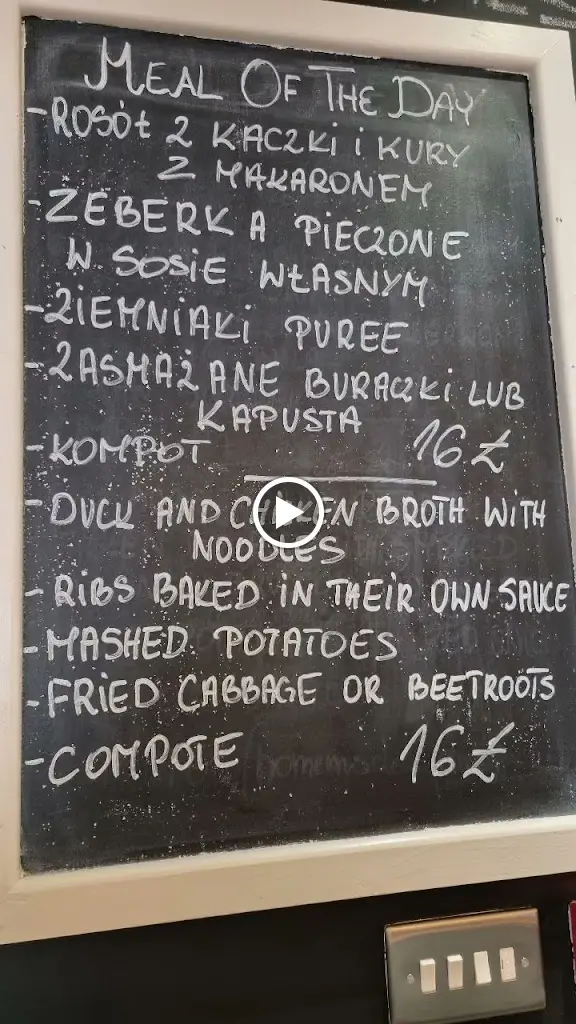 MEAL OF THE DAY
- ROSÓŁ Z KACZKI i KURY
Z MAKARONEM
- ŻEBERKA PIECZONE
W SOSIE WŁASNYM
- ZIEMNIAKI PUREE
- ZASMAŻANE BURACZKI LUB
KAPUSTA
- KOMPOT 16 ZŁ
- DUCK AND CHICKEN BROTH WITH
NOODLES
- RIBS BAKED IN THEIR OWN SAUCE
- MASHED POTATOES
- FRIED CABBAGE OR BEETROOTS
- COMPOTE 16 ZŁ